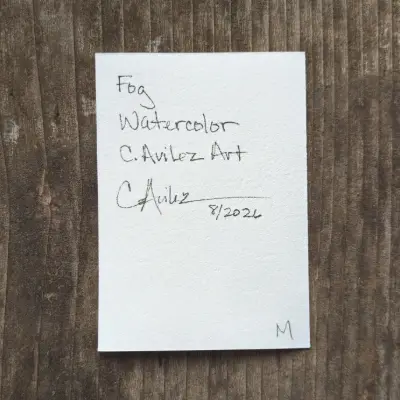 Fog
Watercolor
C. Avilez Art
C Avilez
8/2026
M